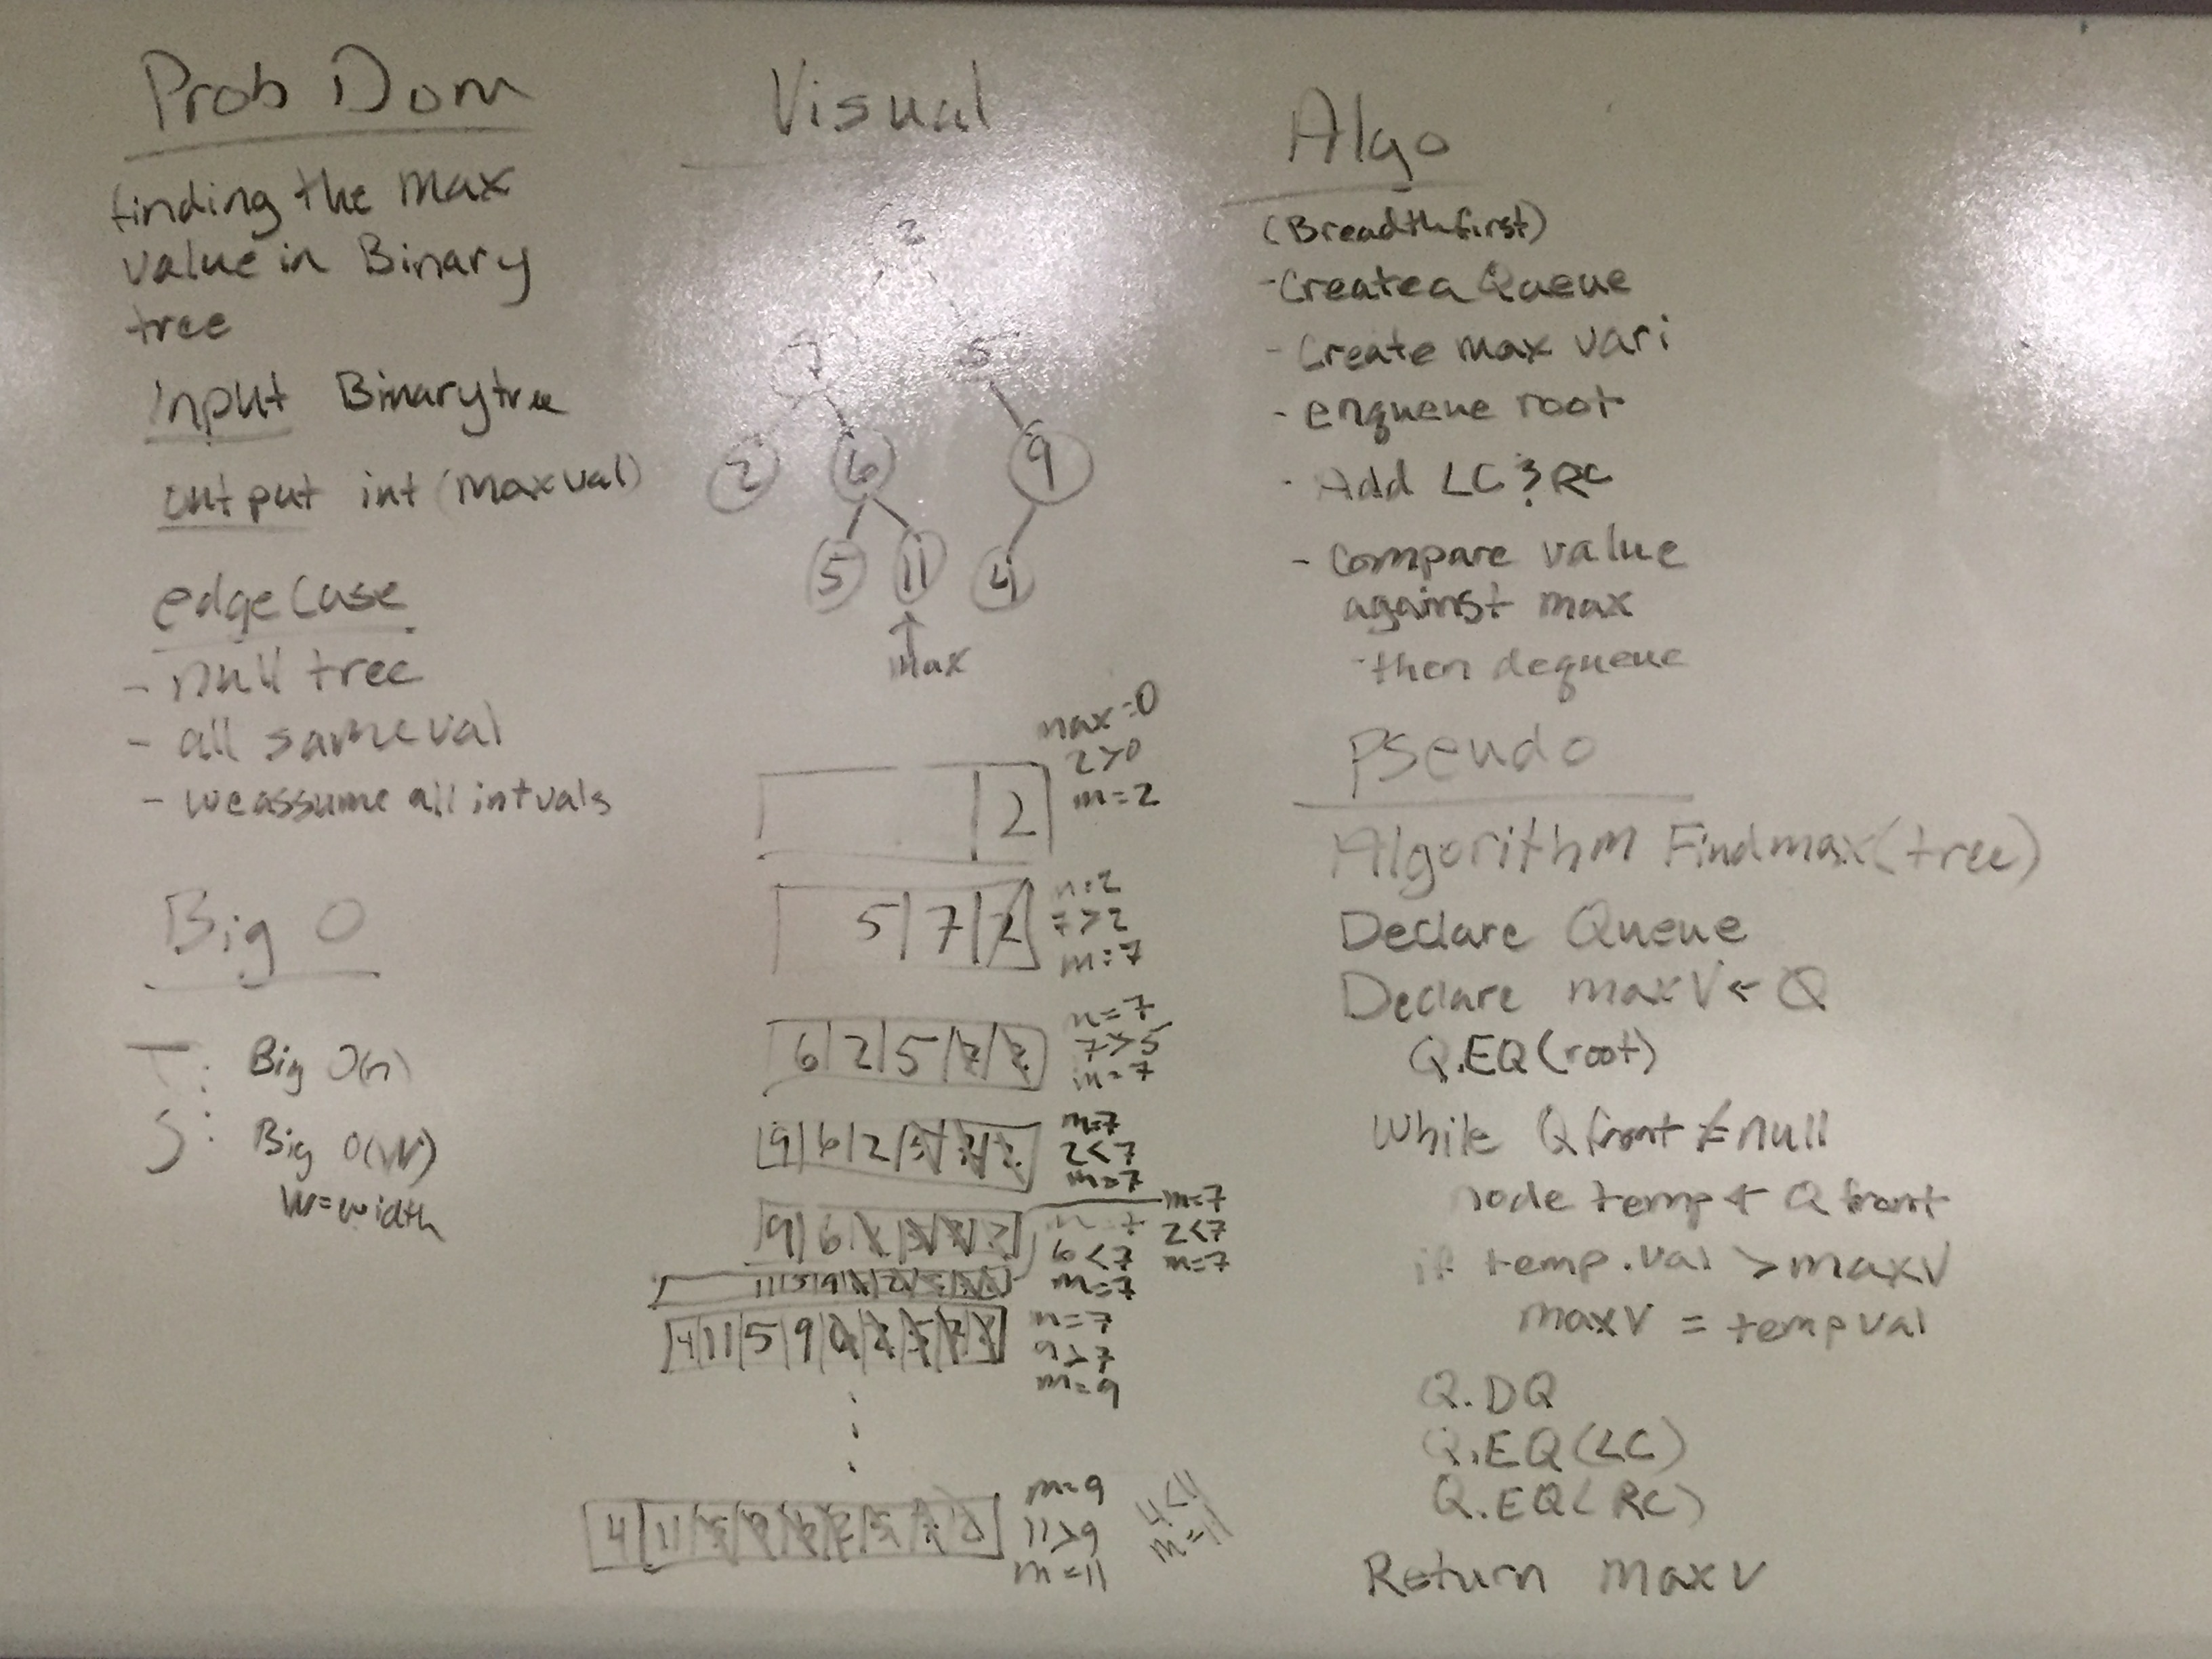 Prob Dom
finding the max
value in Binary
tree
input Binarytree
output int (maxval)
edgeCase
- null tree
- all same val
- we assume all int vals
Big O
T: Big O(n)
S: Big O(W)
W=width
Visual
2
7 5
2 6 9
5 11 4
↑
max
max=0
2>0
m=2
2
5|7|2
m=2
7>2
m=7
6|2|5|7|2
m=7
7>5
m=7
9|6|2|5|7|2
m=7
2<7
m=7
9|6|2|5|7|2
m=7
2<7
m=7
6<7
m=7
11|5|9|6|2|5|7|2
4|11|5|9|6|2|5|7|2
m=7
9>7
m=9
4|11|5|9|6|2|5|7|2
m=9
11>9
m=11
4<11
m=11
Algo
(Breadthfirst)
- Create a Queue
- Create max vari
- enqueue root
- Add LC & RC
- Compare value
against max
- then dequeue
Pseudo
Algorithm Findmax(tree)
Declare Queue
Declare maxV ← Ø
Q.EQ(root)
While Q front ≠ null
node temp ← Q front
if temp.val > maxV
maxV = temp val
Q.DQ
Q.EQ(LC)
Q.EQ(RC)
Return maxV